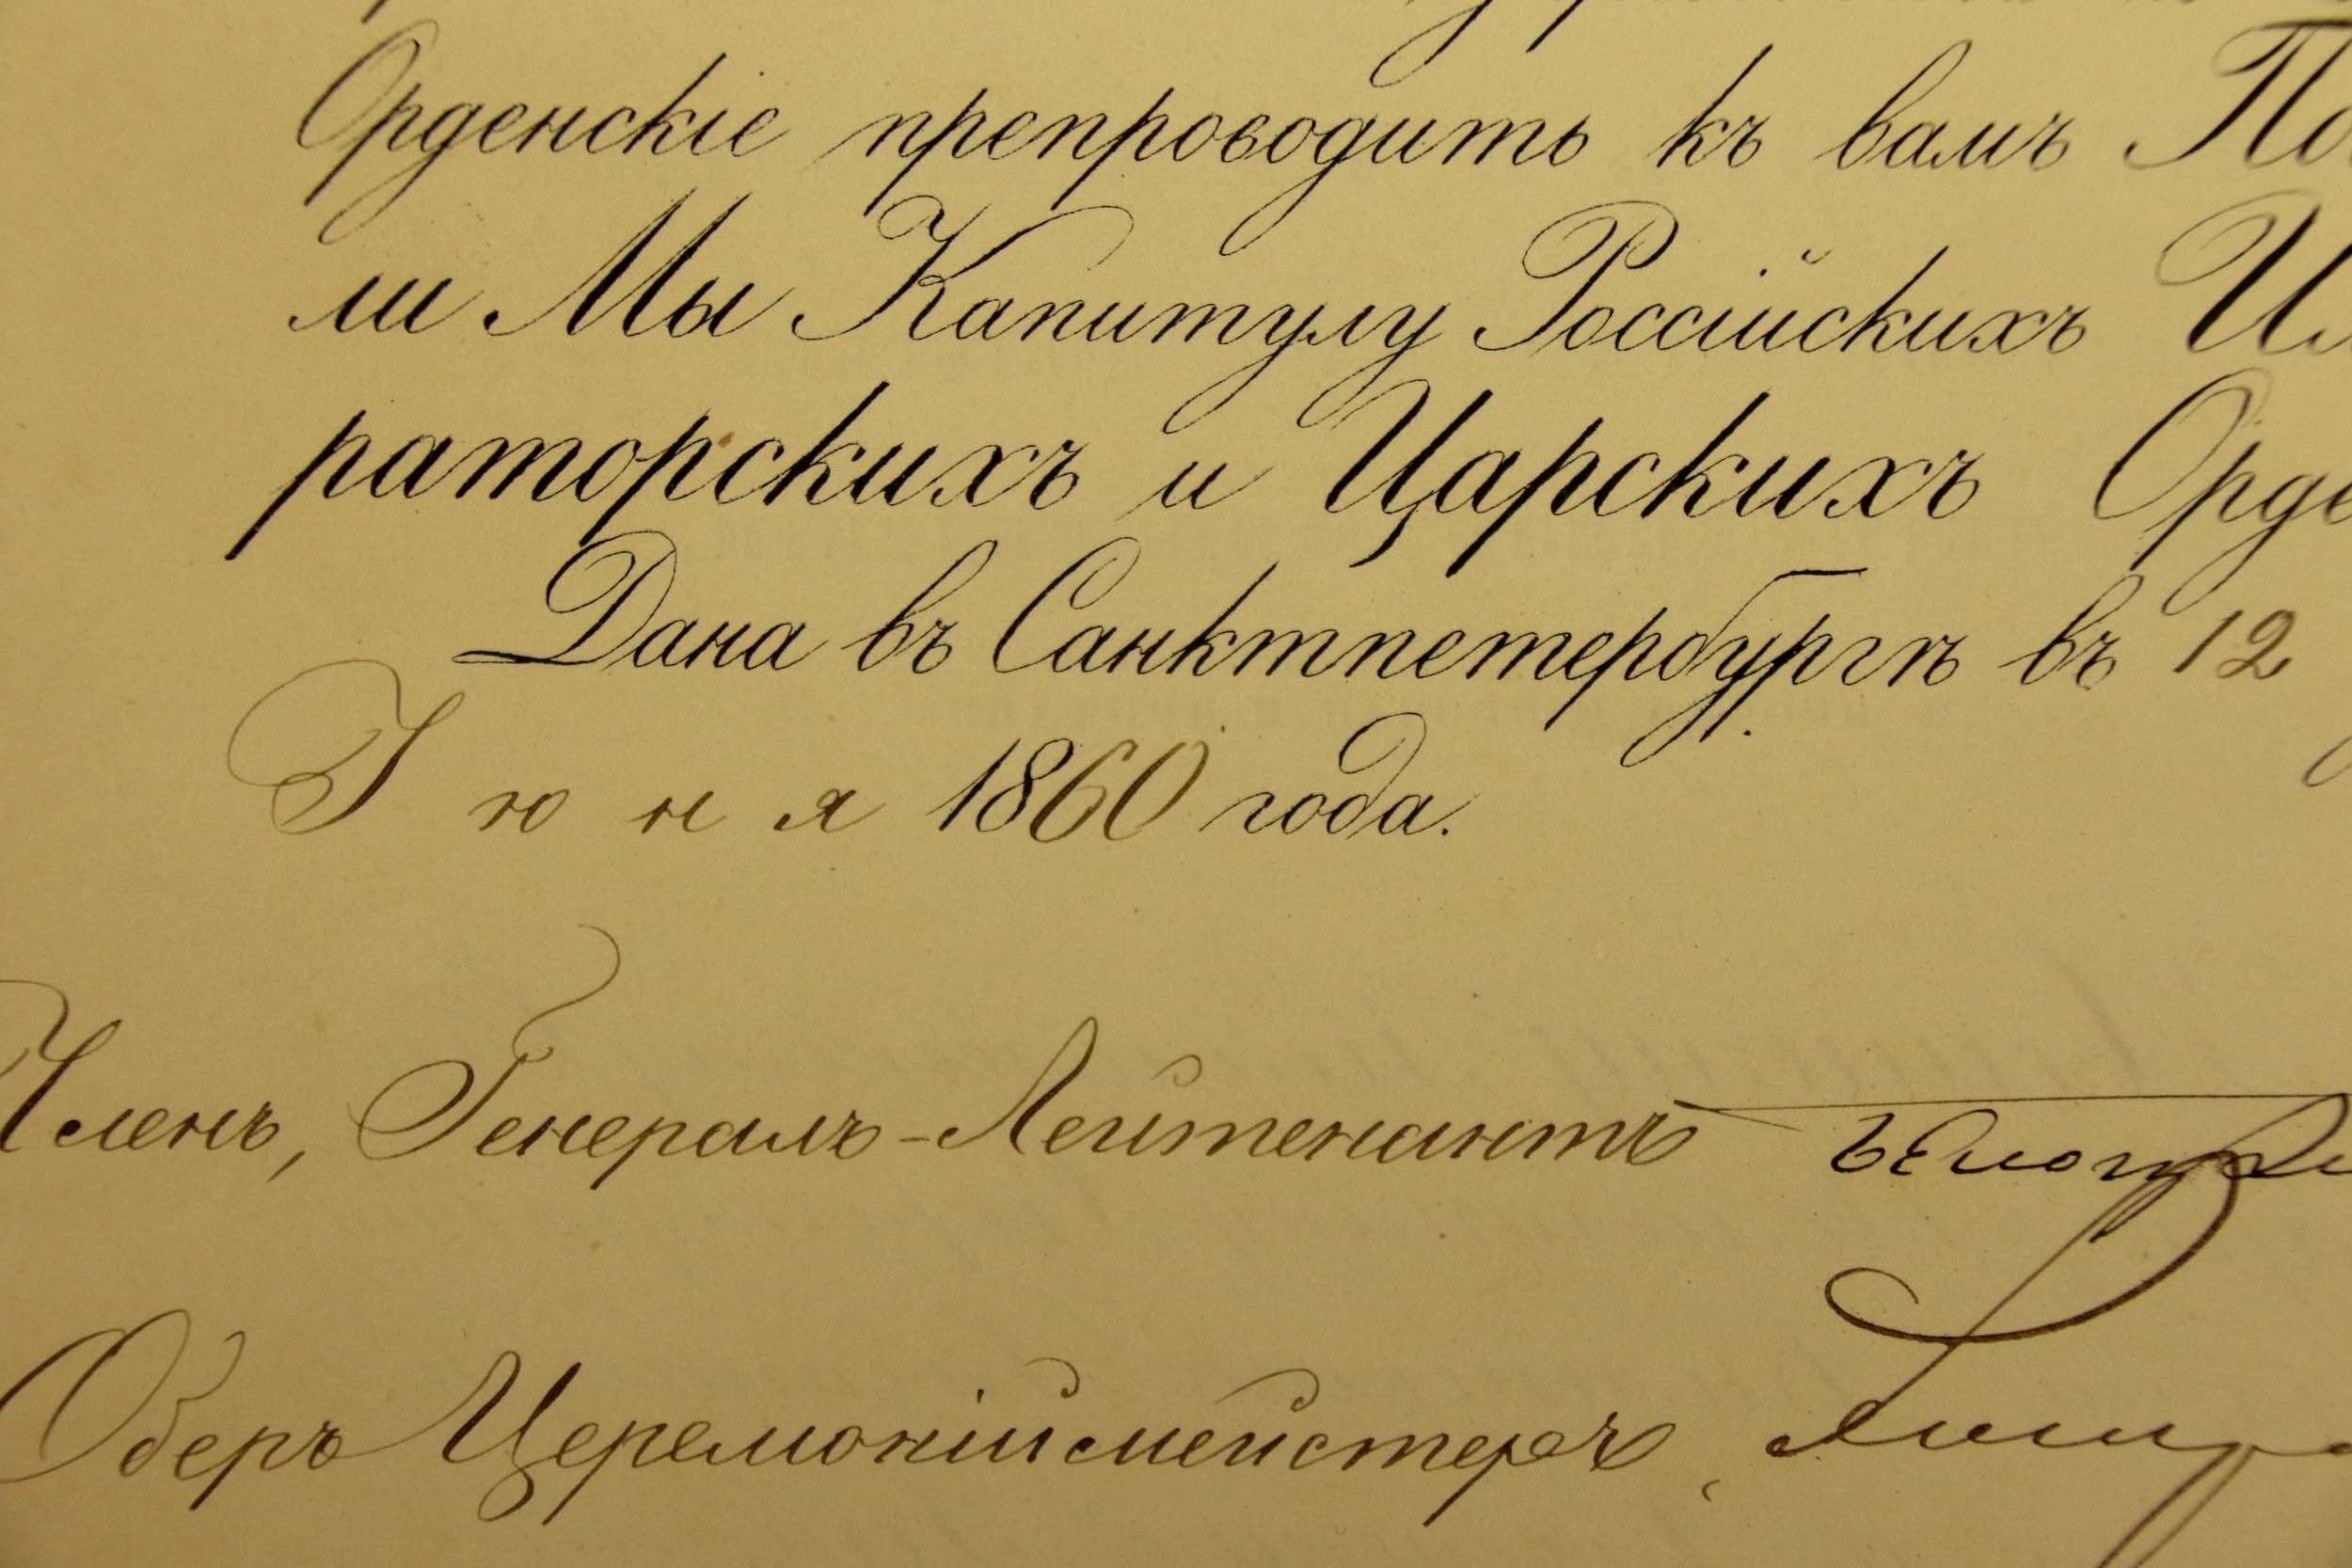 Орденскіе препроводить къ вамъ
ли Мы Капитулу Россійскихъ
раторскихъ и Царскихъ Орде
Дана въ Санктпетербургѣ въ 12
Іюня 1860 года.
Членъ, Генералъ-Лейтенантъ
Оберъ Церемоніймейстеръ,